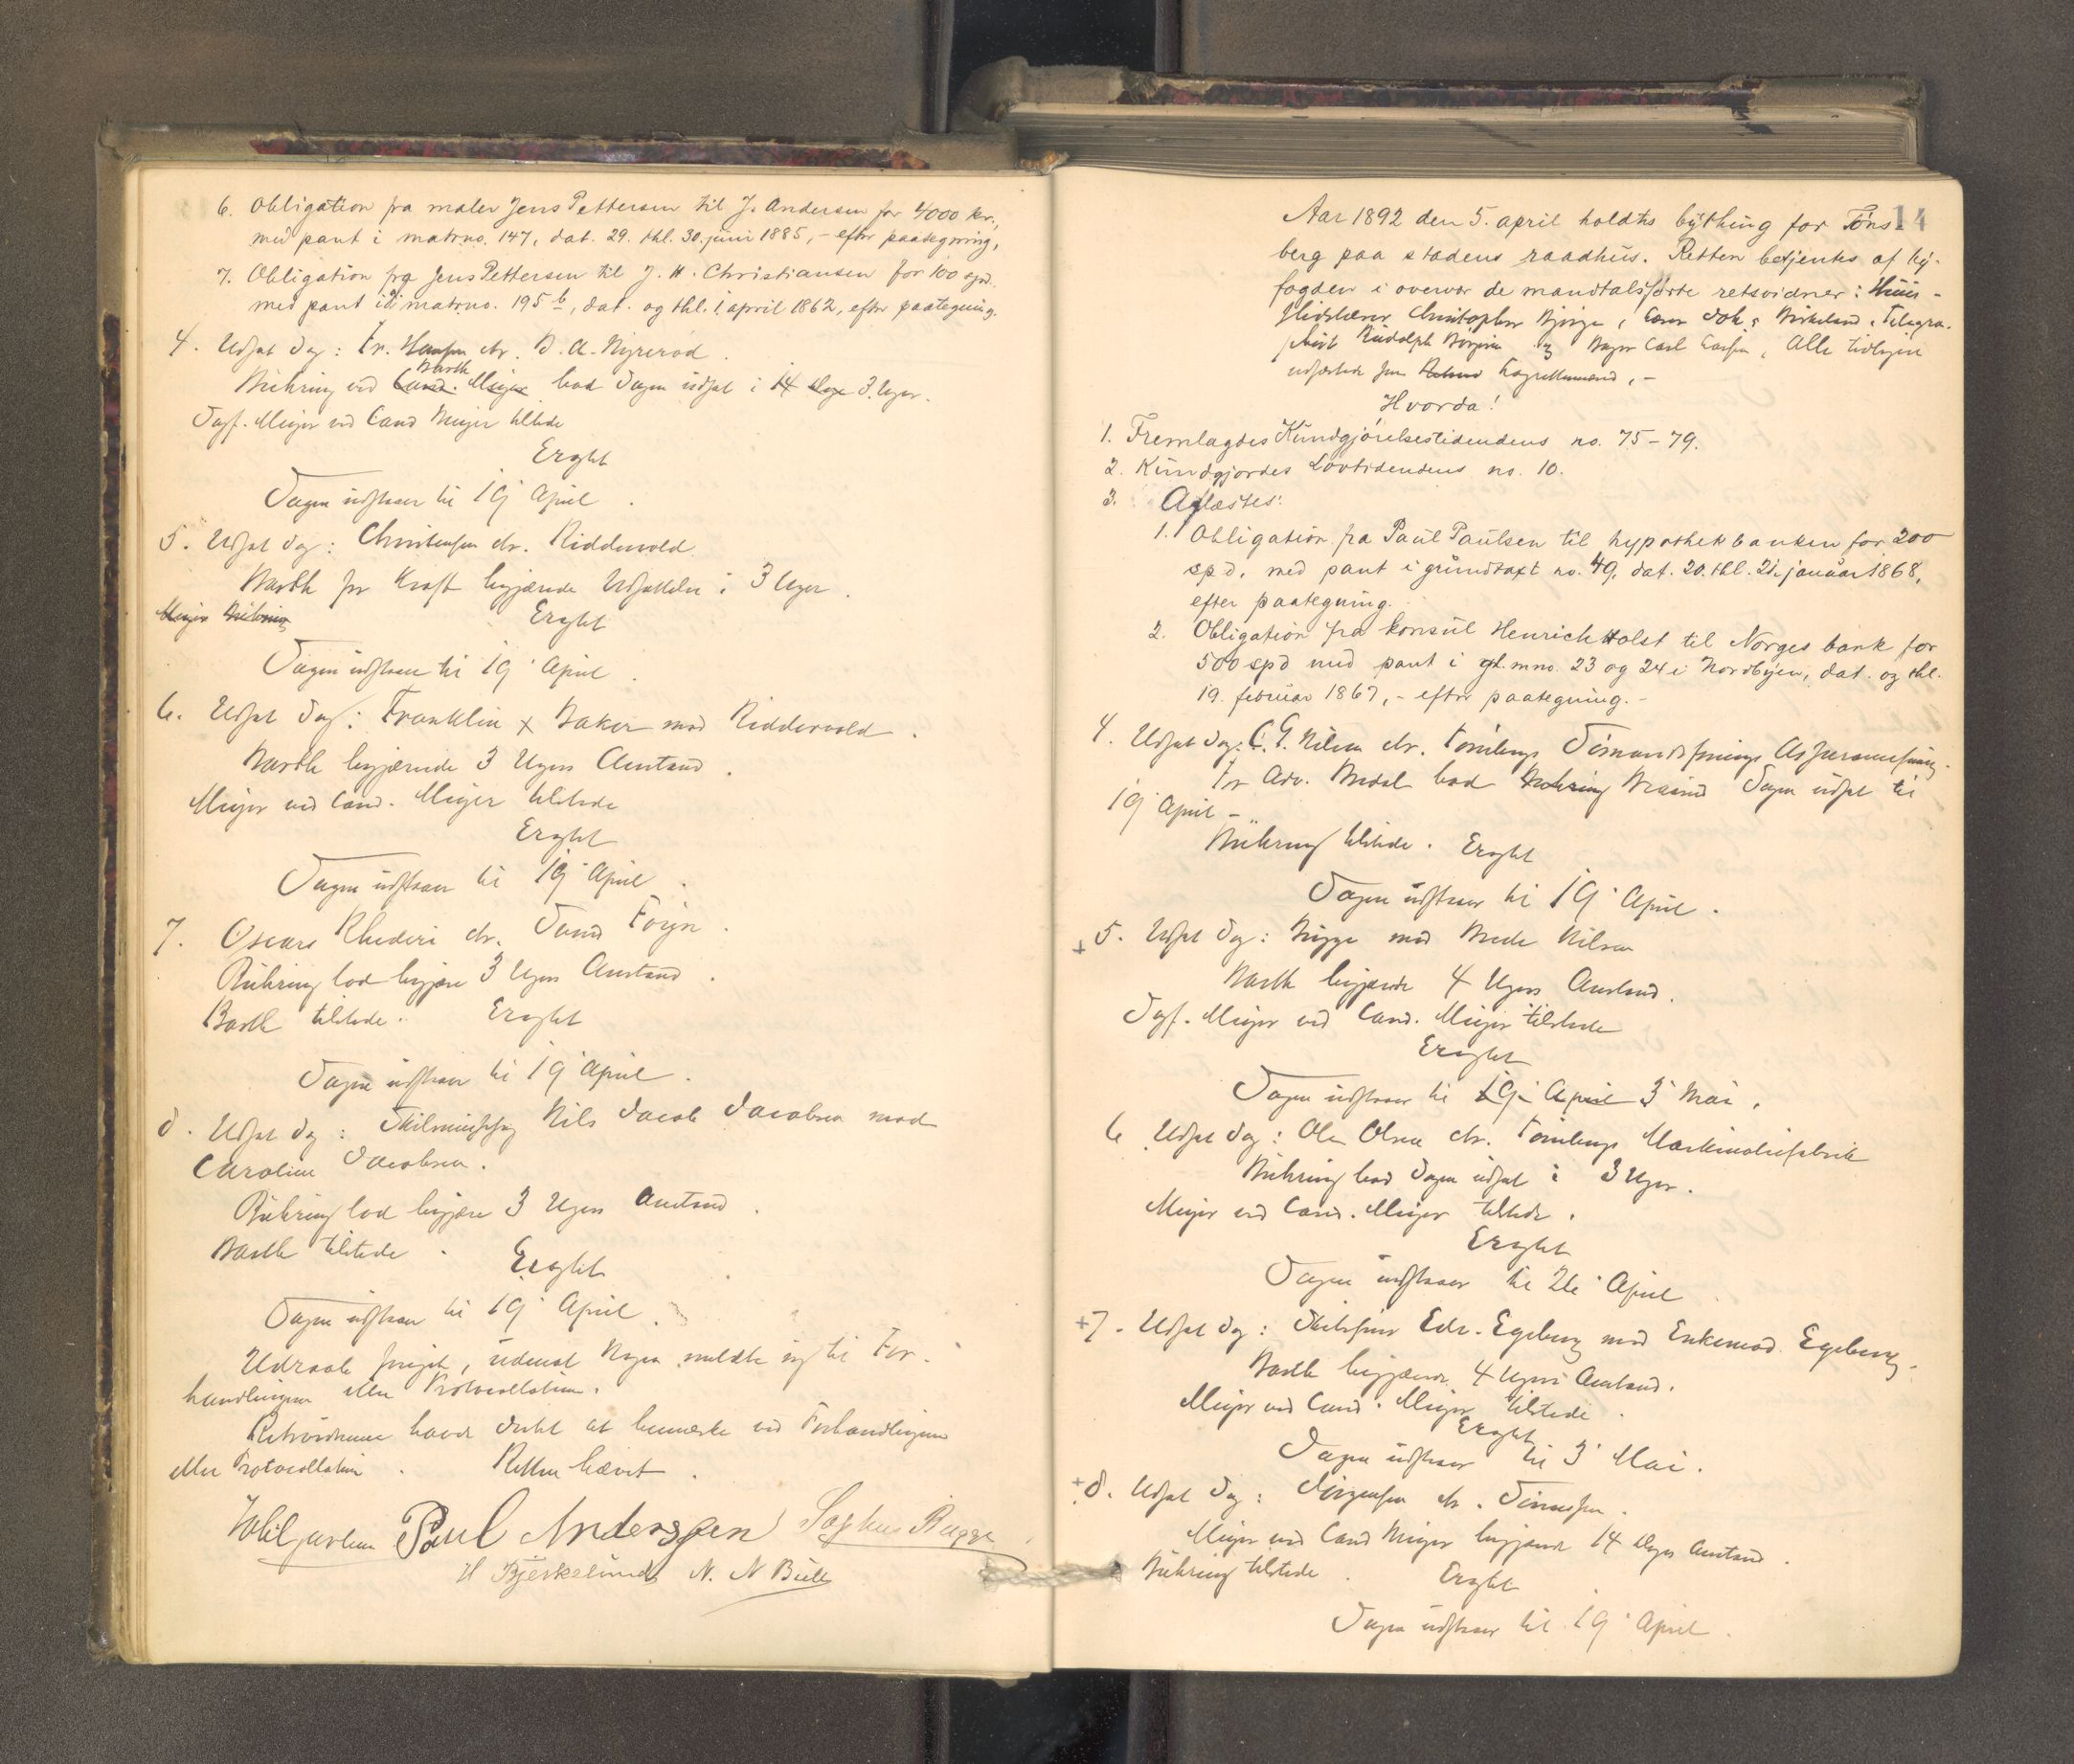 6. Obligation fra maler Jens Pettersen til J. Andersen for 4000 kr,
med pant i matrno. 147, dat. 29. thl. 30. juni 1885, – efter paategning,
7. Obligation fra Jens Pettersen til J. H. Christiansen for 100 spd.
med pant i matrno. 195 b, dat. og thl. 1. april 1862, efter paategning.
4. Udsat Sag: Fr. Hansen ctr. B. A. Nyrerød.
Bühring ved Cand. Meyer Barth bad Sagen udsat i 14 Dage 3 Uger.
Sagf. Meyer ved Cand Meyer tilstede
Eragtet
Sagen udstaaer til 19' April.
5. Udsat Sag: Christensen ctr. Riddervold.
Barth for Kraft begjærede Udsættelse i 3 Uger.
Meyer Bühring
Eragtet
Sagen udstaaer til 19' April.
6. Udsat Sag: Franklin & Baker mod Riddervold.
Barth begjærede 3 Ugers Anstand.
Meyer ved Cand. Meyer tilstede
Eragtet
Sagen udstaaer til 19' April.
7. Oscars Rhederi ctr. Svend Foyn.
Bühring lod begjære 3 Ugers Anstand.
Barth tilstede. Eragtet
Sagen udstaaer til 19' April.
8. Udsat Sag: Skilsmissesag Nils Jacob Jacobsen mod
Caroline Jacobsen.
Bühring lod begjære 3 Ugers Anstand.
Barth tilstede. Eragtet
Sagen udstaaer til 19' April.
Udraab foregik, uden at Nogen meldte sig til For-
handlingerne eller Protocollation.
Retsvidnerne havde Intet at bemærke ved Forhandlingerne
eller Protocollation. Retten hævet.
Paul Anderssen Sophus Bugge
H Bjerkelund N. N Bull
14
Aar 1892 den 5. april holdtes bything for Tøns-
berg paa stadens raadhus. Retten betjentes af by-
fogden i overvær de mandtalsførte retsvidner: Huus-
flidslærer Christopher Bjerge, Joh. Birkeland, Telegra-
phist Rudolph og Bager Carl Larsen, Alle tidligere
edfæstede som Lagrettemænd, –
Hvorda!
1. Fremlagdes Kundgjørelsestidendens no. 75 – 79.
2. Kundgjordes Lovtidendens no. 10.
3. Aflæstes:
1. Obligation fra Paul Paulsen til hypothekbanken for 200
spd. med pant i grundtaxt no. 49, dat. 20. thl. 21. januar 1868,
efter paategning.
2. Obligation fra konsul Henrich Holst til Norges bank for
500 spd med pant i gl. mno. 23 og 24 i Nordbyen, dat. og thl.
19. februar 1867, – efter paategning. –
4. Udsat Sag: C. G. Nilsen ctr. Tønsbergs Sømandsforenings Assuranceforening.
For Adv. Bredal bad Bühring Sagen udsat til
19' April –
Bühring tilstede. Eragtet
Sagen udstaaer til 19' April.
+ 5. Udsat Sag: Bugge mod Brede Nilsen
Barth begjærede 4 Ugers Anstand.
Sagf. Meyer ved Cand. Meyer tilstede
Eragtet
Sagen udstaaer til 19' April 3' Mai.
6 Udsat Sag: Ole Olsen ctr. Tønsbergs Maskinoliefabrik
Bühring bad Sagen udsat i 3 Uger.
Meyer ved Cand. Meyer tilstede.
Eragtet
Sagen udstaaer til 26' April
+ 7. Udsat Sag: Edv. Egeberg mod Enkemad. Egeberg.
Barth begjærede 4 Ugers Anstand.
Meyer ved Cand. Meyer tilstede.
Eragtet
Sagen udstaaer til 3' Mai.
+ 8. Udsat Sag: Jørgensen ctr. Simensen.
Meyer ved Cand Meyer begjærede 14 Dages Anstand.
Bühring tilstede. Eragtet
Sagen udstaaer til 19' April.